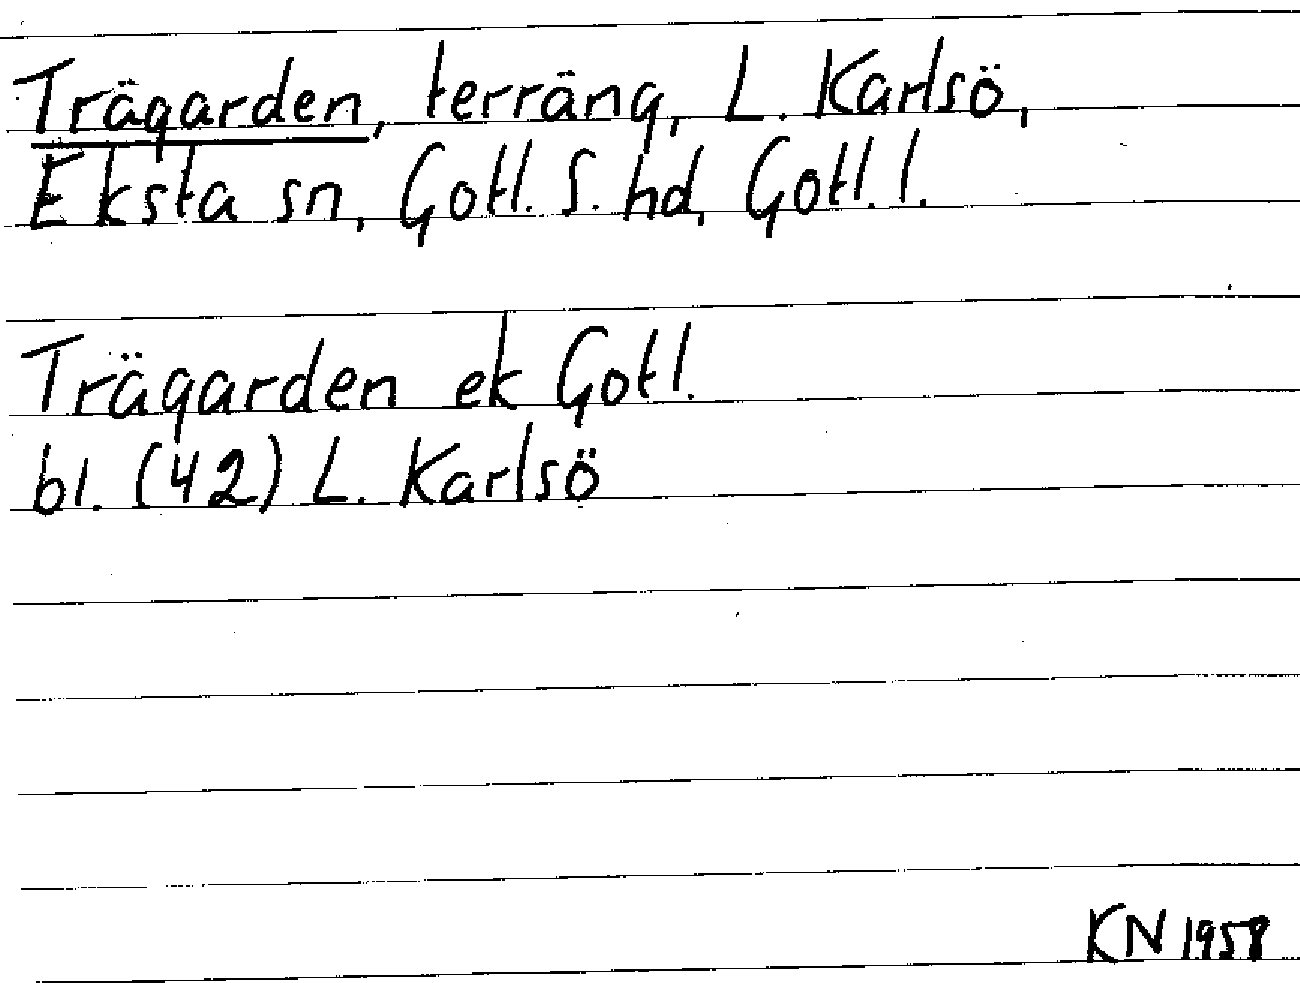 Trägarden, terräng, L. Karlsö,
Eksta sn, Gotl. S. hd, Gotl. l.
Trägarden ek Gotl.
bl. (42) L. Karlsö
KN 1958